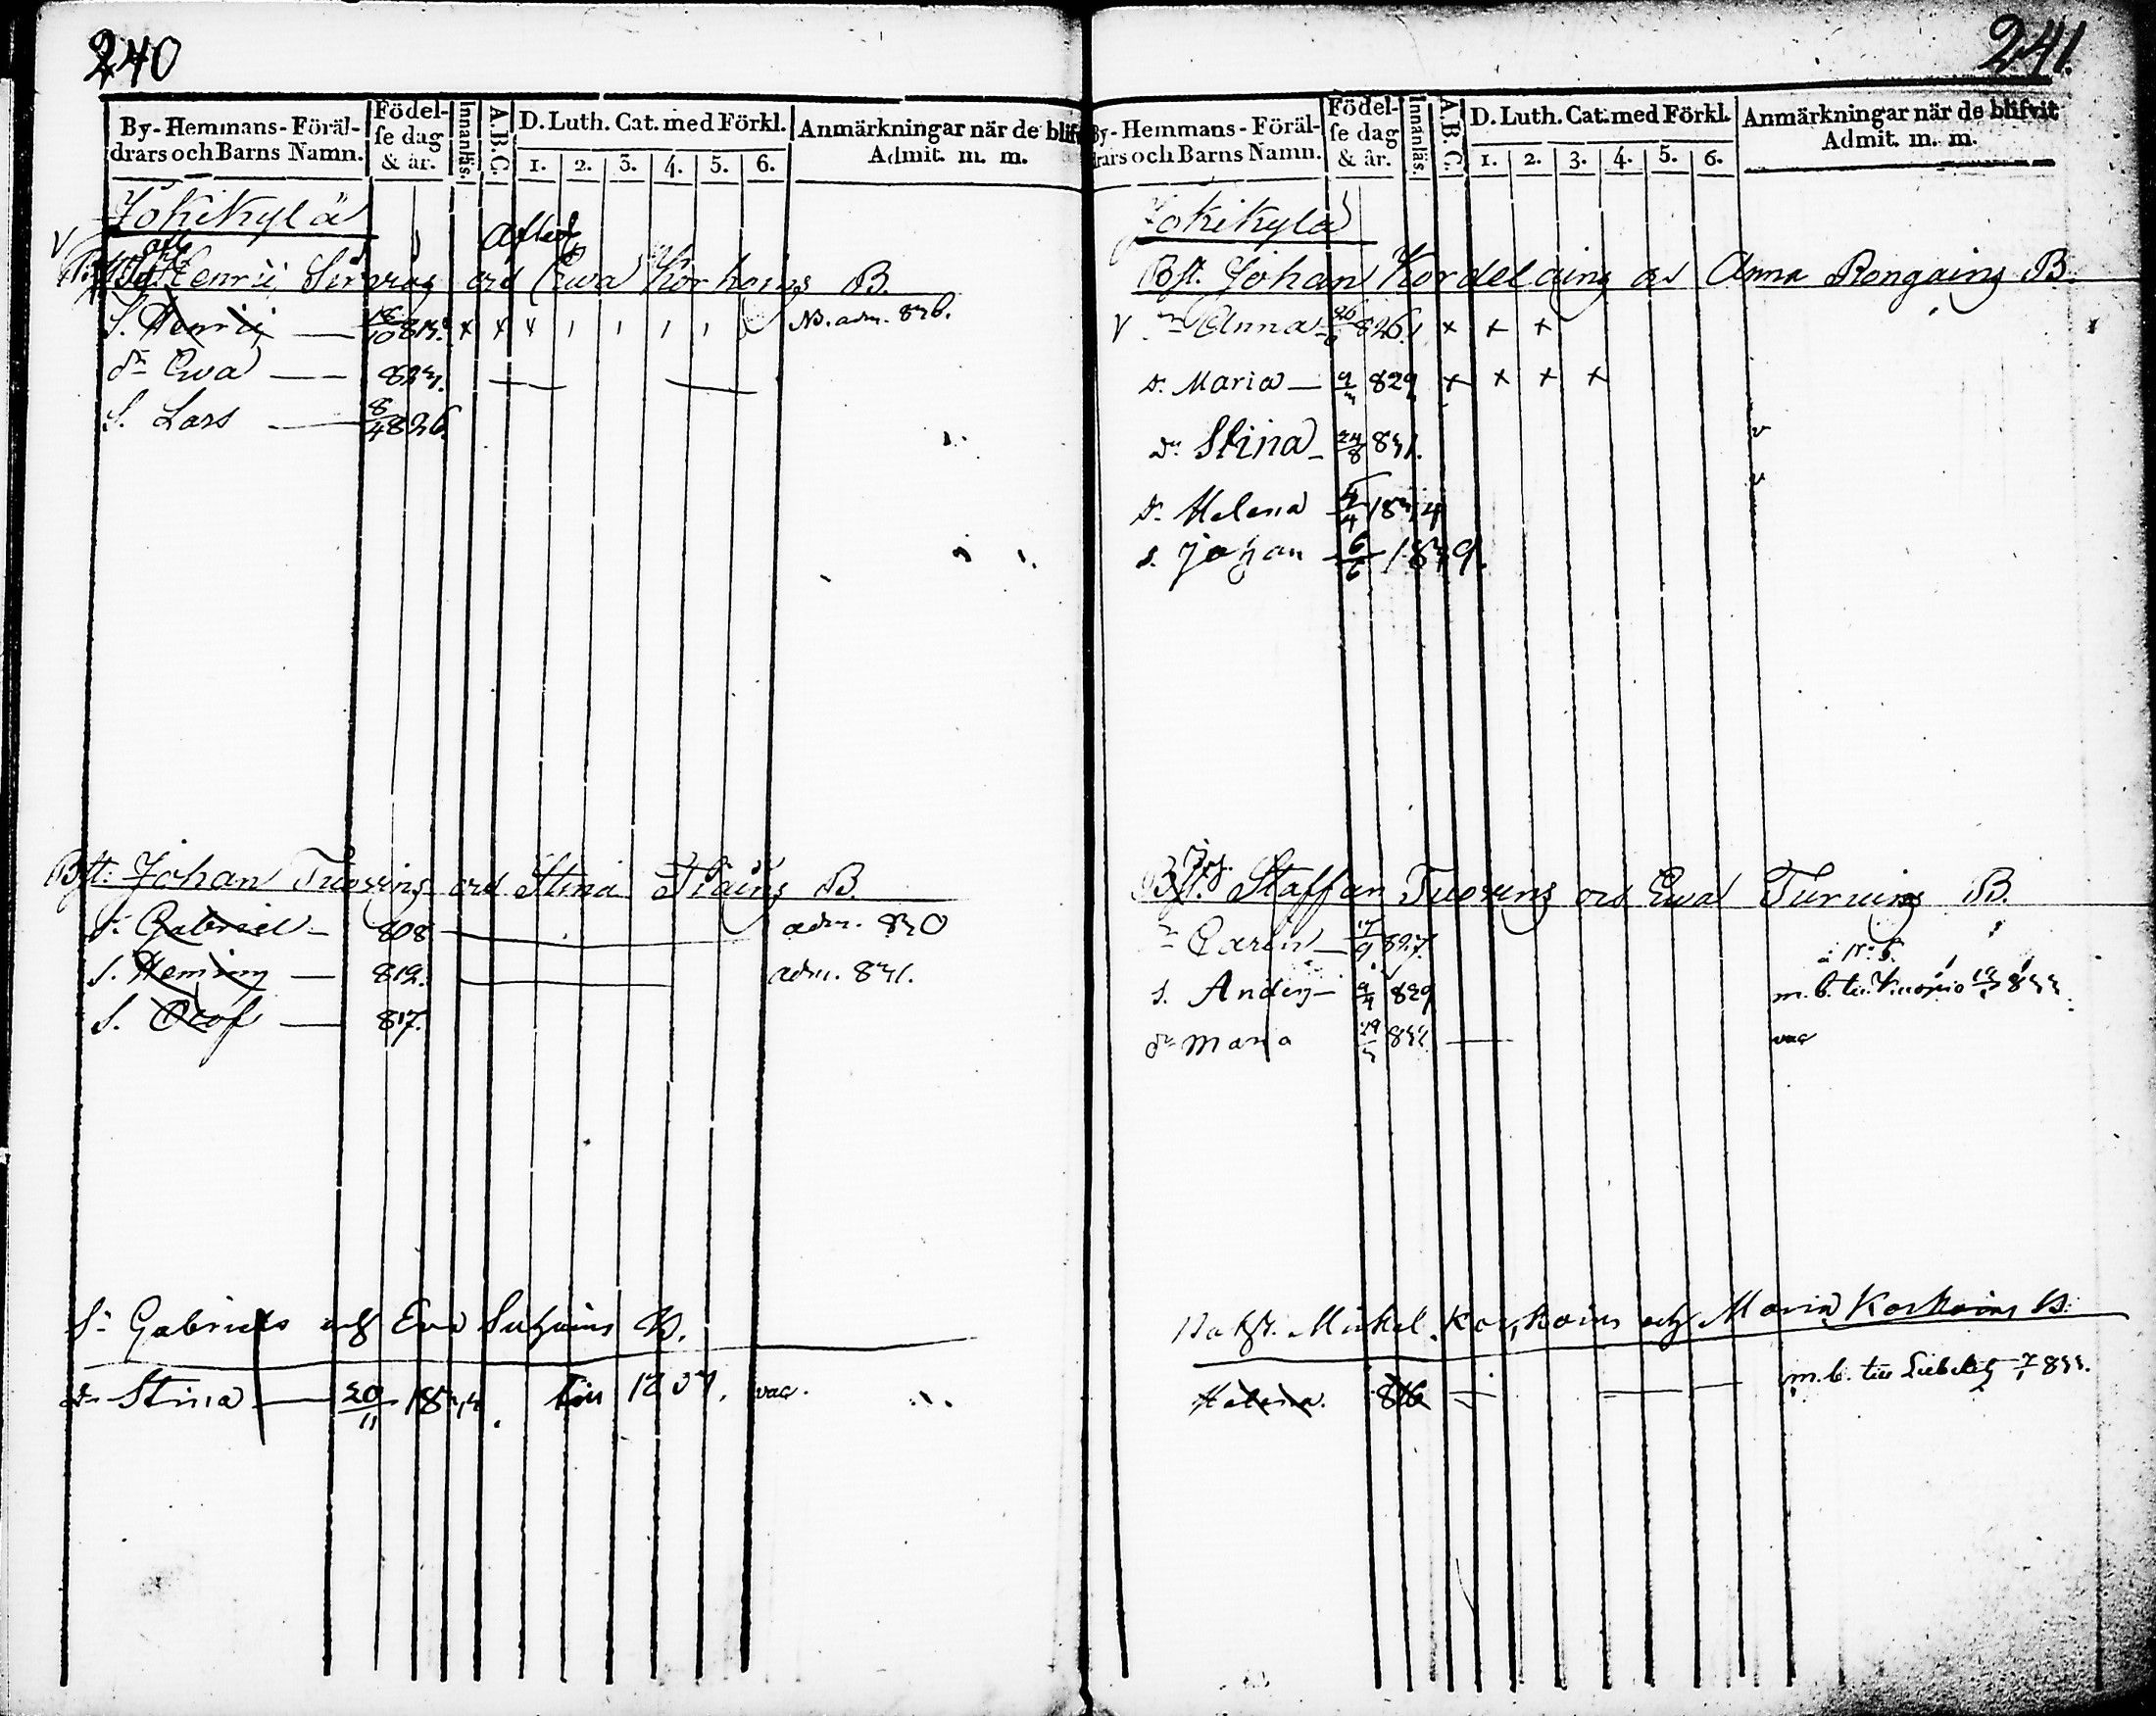 240
By-Hemmans-Föräl-
drars och Barns Namn.
Födel-
se dag
& år.
Innanläs.
A.B.C.
D. Luth. Cat. med Förkl.
1. 2. 3. 4. 5. 6.
Anmärkningar när de blif
Admit. m. m.
Jokikylä
Henric ord Ewa Korhoins B.
S. Henric 18/10 819. x x x NB. adm. 836.
dr Ewa 823.
S. Lars 8/4 826.
Bst: Johan Tuorins ord Stina B.
S. Gabriel 808 adm. 830
S. Heming 812. adm. 831.
S. Olof 817.
Sn Gabriels och Eva B.
dr Stina 20/11 1834. vac.
241.
By-Hemmans-Föräl-
drars och Barns Namn.
Födel-
se dag
& år.
Innanläs.
A.B.C.
D. Luth. Cat. med Förkl.
1. 2. 3. 4. 5. 6.
Anmärkningar när de blifvit
Admit. m. m.
Jokikylä
Bst. Johan Kordelains Anna Rongains B.
v Anna 26/6 826. x x x
dr. Maria 9/3 829 x x x x
dr Stina 24/8 831.
dr Helena 1834
s. Johan 6/6 1839.
Bst. Staffan Tuorins ord Ewa B.
Carin 17/9 827.
S. Anders 829 m. b. till Kuopio 833
dr Maria 29/3 832 vac
Mickel Korhoins och Maria Korhoins B.
Helena. 816 m. b. till Libelits 833.